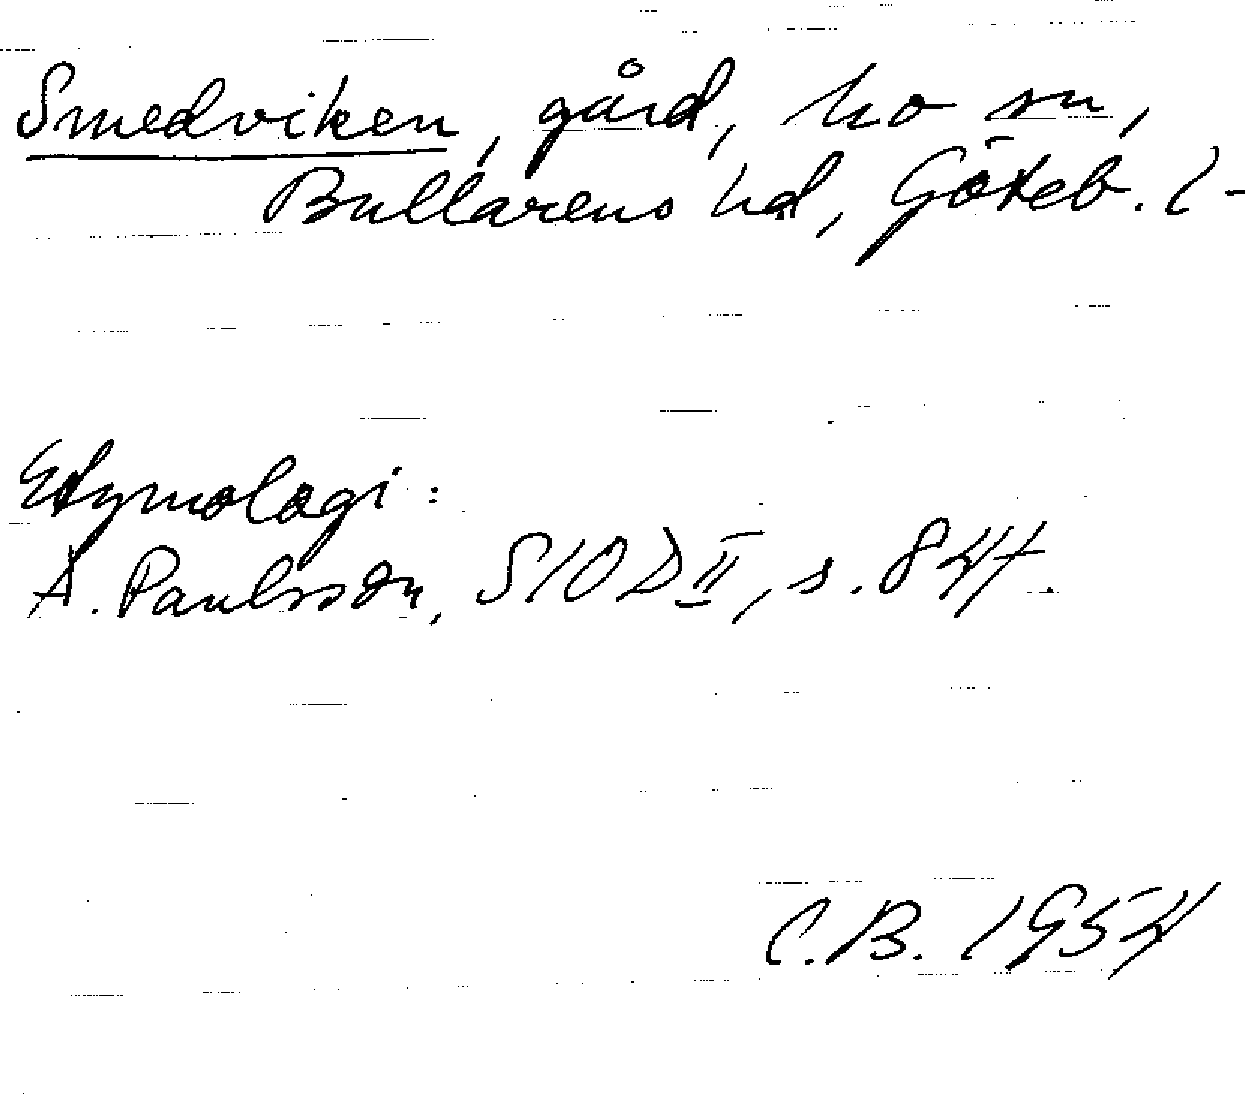 Smedviken, gård, ho sn,
Bullarens hd, Göteb. l-
Etymologi:
A. Paulsson, SIOD II, s. 84f.
C.B. 1954